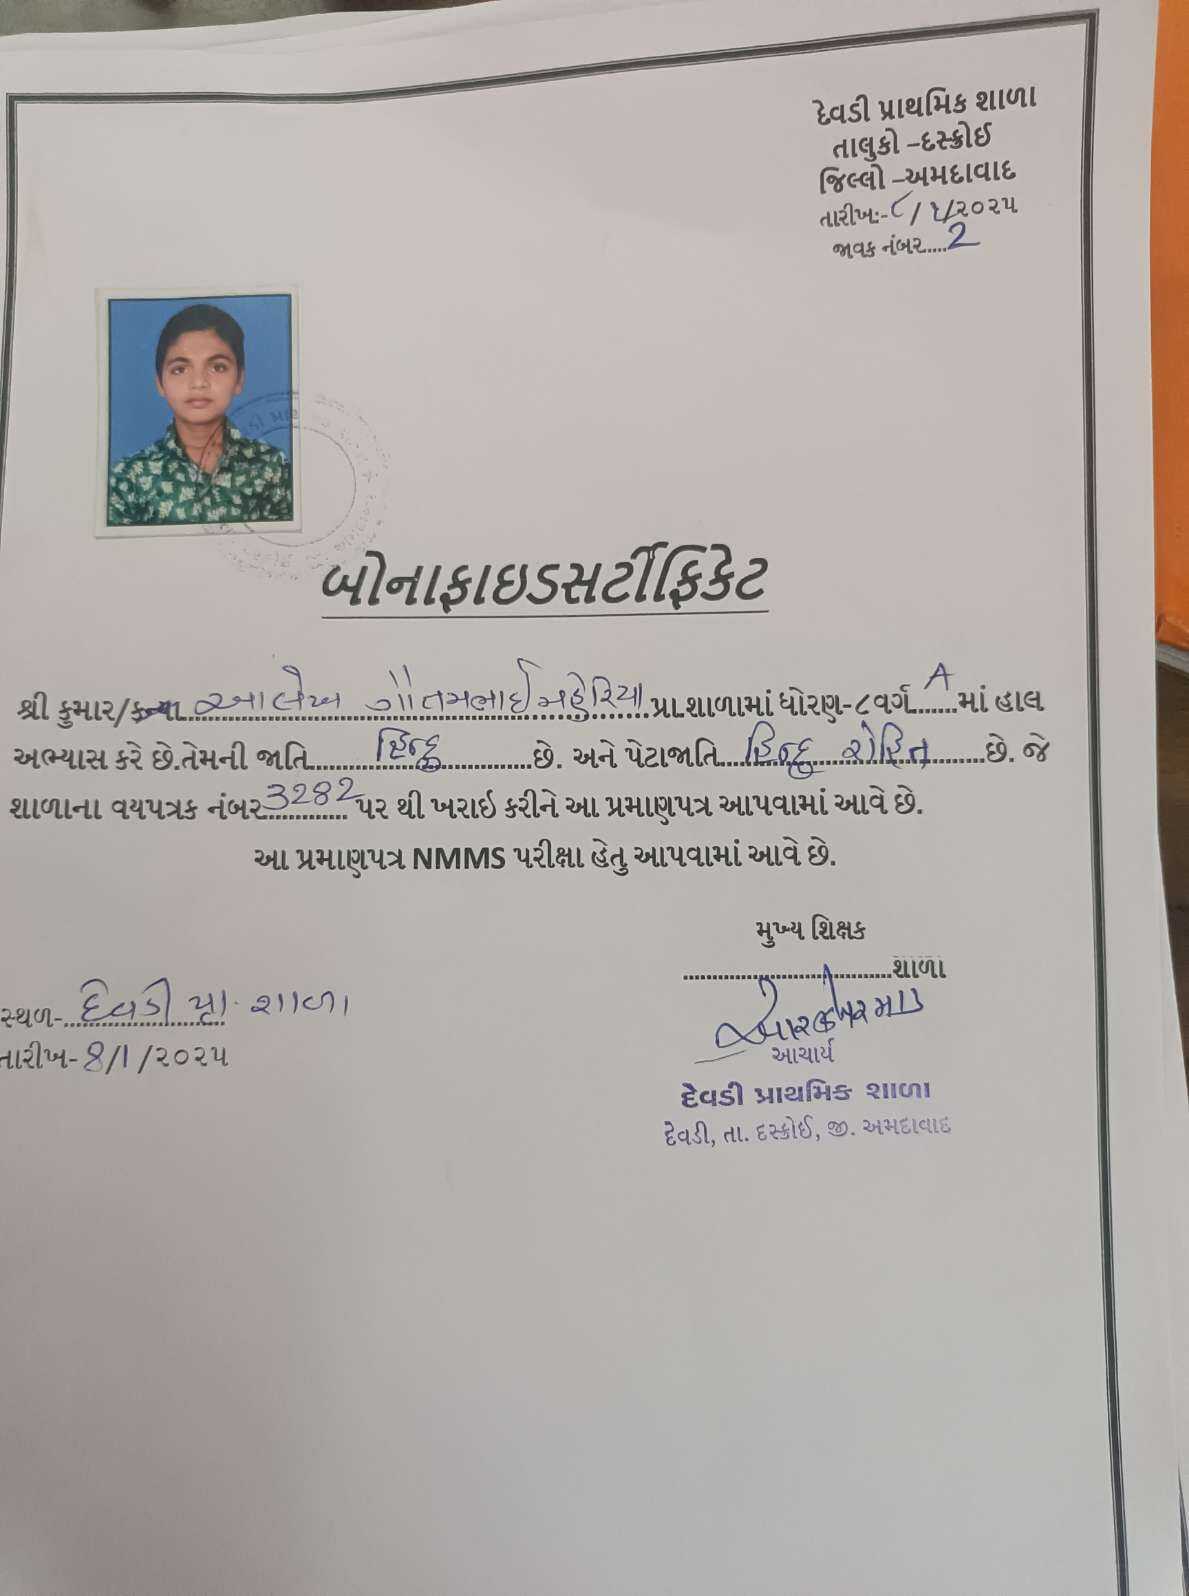 દેવડી પ્રાથમિક શાળા
તાલુકો –દસ્ક્રોઈ
જિલ્લો –અમદાવાદ
તારીખઃ-૮/૧/૨૦૨૫
જાવક નંબર....2
બોનાફાઇડસર્ટીફિકેટ
શ્રી કુમાર/કન્યા આલેખ ગૌતમભાઈ મહેરિયા પ્રા.શાળામાં ધોરણ-૮વર્ગ A માં હાલ
અભ્યાસ કરે છે.તેમની જાતિ હિન્દુ છે. અને પેટાજાતિ હિન્દુ રોહિત છે. જે
શાળાના વયપત્રક નંબર 3282 પર થી ખરાઇ કરીને આ પ્રમાણપત્ર આપવામાં આવે છે.
આ પ્રમાણપત્ર NMMS પરીક્ષા હેતુ આપવામાં આવે છે.
મુખ્ય શિક્ષક
શાળા
સ્થળ- દેવડી પ્રા. શાળા
તારીખ-8/1/૨૦૨૫
આચાર્ય
દેવડી પ્રાથમિક શાળા
દેવડી, તા. દસ્ક્રોઈ, જી. અમદાવાદ